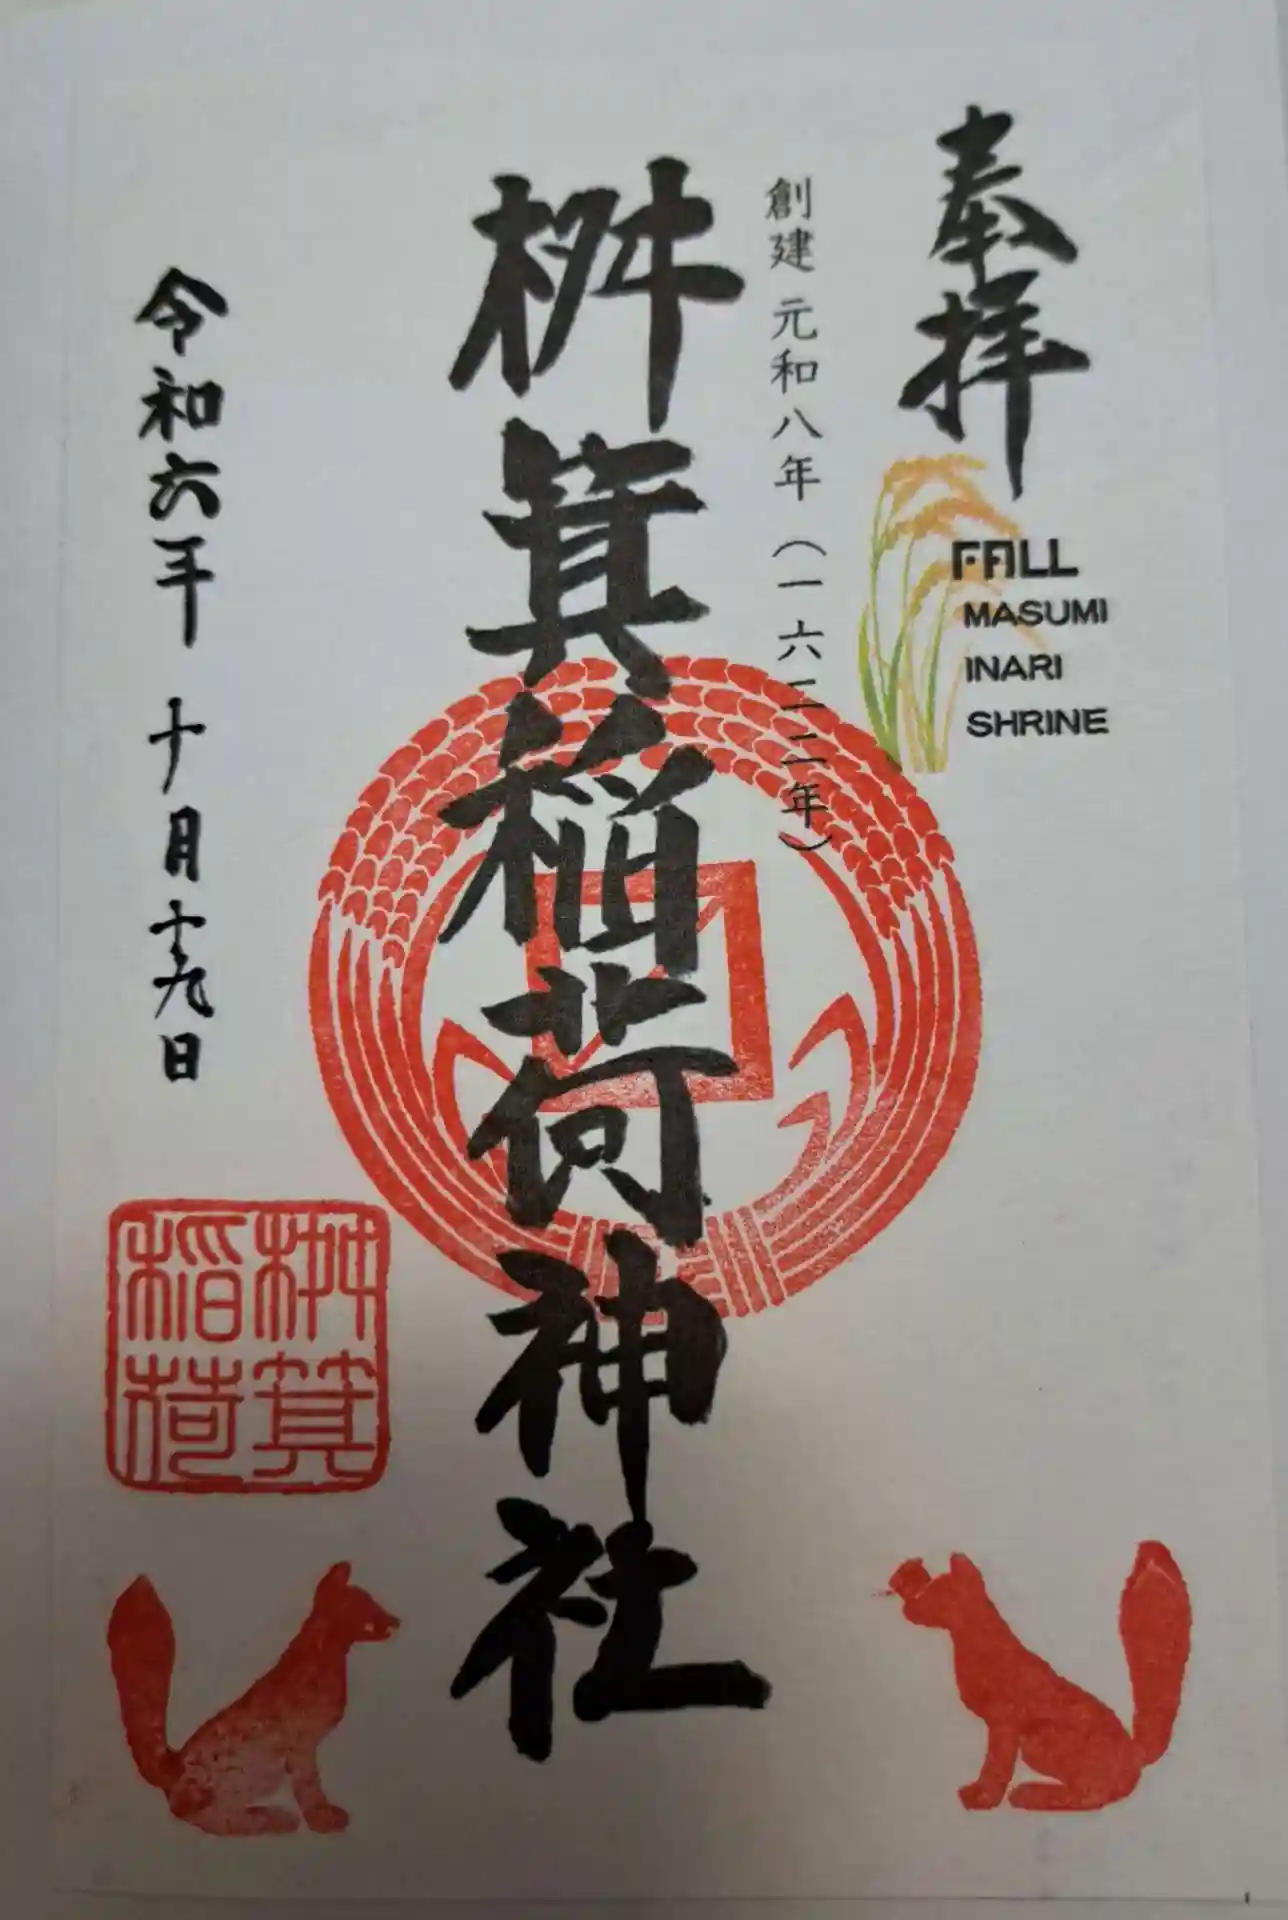 奉拝
FALL
MASUMI
INARI
SHRINE
創建 元和八年（一六二二年）
桝箕稲荷神社
令和六年 十月十九日
桝箕
稲荷